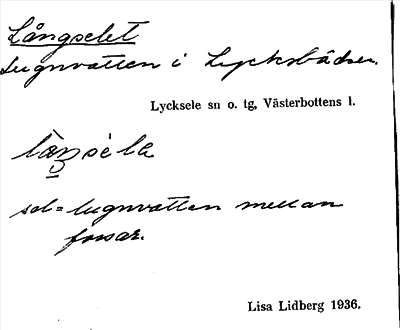 Långselet
Lugnvatten i Lycksbäcken.
Lycksele sn o. tg, Västerbottens l.
sel = lugnvatten mellan
forsar.
Lisa Lidberg 1936.